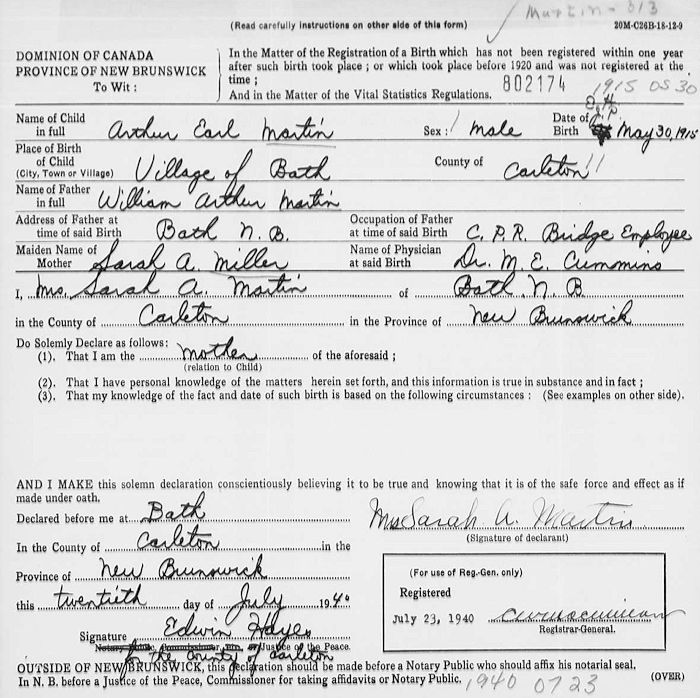 Martin - 313
(Read carefully instructions on other side of this form) 20M-C26B-18-12-9
DOMINION OF CANADA
PROVINCE OF NEW BRUNSWICK
To Wit :
In the Matter of the Registration of a Birth which has not been registered within one year
after such birth took place ; or which took place before 1920 and was not registered at the
time ;
And in the Matter of the Vital Statistics Regulations. 802174 1915 05 30
Name of Child in full Arthur Earl Martin Sex : Male Date of Birth May 30, 1915
Place of Birth of Child (City, Town or Village) Village of Bath County of Carleton
Name of Father in full William Arthur Martin
Address of Father at time of said Birth Bath N. B. Occupation of Father at time of said Birth C. P. R. Bridge Employee
Maiden Name of Mother Sarah A. Miller Name of Physician at said Birth Dr. M. E. Cummins
I, Mrs. Sarah A. Martin of Bath, N. B
in the County of Carleton in the Province of New Brunswick
Do Solemly Declare as follows:
(1). That I am the mother of the aforesaid ;
(relation to Child)
(2). That I have personal knowledge of the matters herein set forth, and this information is true in substance and in fact ;
(3). That my knowledge of the fact and date of such birth is based on the following circumstances : (See examples on other side).
AND I MAKE this solemn declaration conscientiously believing it to be true and knowing that it is of the safe force and effect as if
made under oath.
Declared before me at Bath
In the County of Carleton in the
Province of New Brunswick
this twentieth day of July 1940
Signature Edwin Hayes
Notary Public, Commissioner, Etc, or Justice of the Peace.
for the County of Carleton
Mrs Sarah A. Martin
(Signature of declarant)
(For use of Reg.-Gen. only)
Registered
July 23, 1940
Registrar-General.
OUTSIDE OF NEW BRUNSWICK, this declaration should be made before a Notary Public who should affix his notarial seal.
In N. B. before a Justice of the Peace, Commissioner for taking affidavits or Notary Public. 1940 07 23 (OVER)